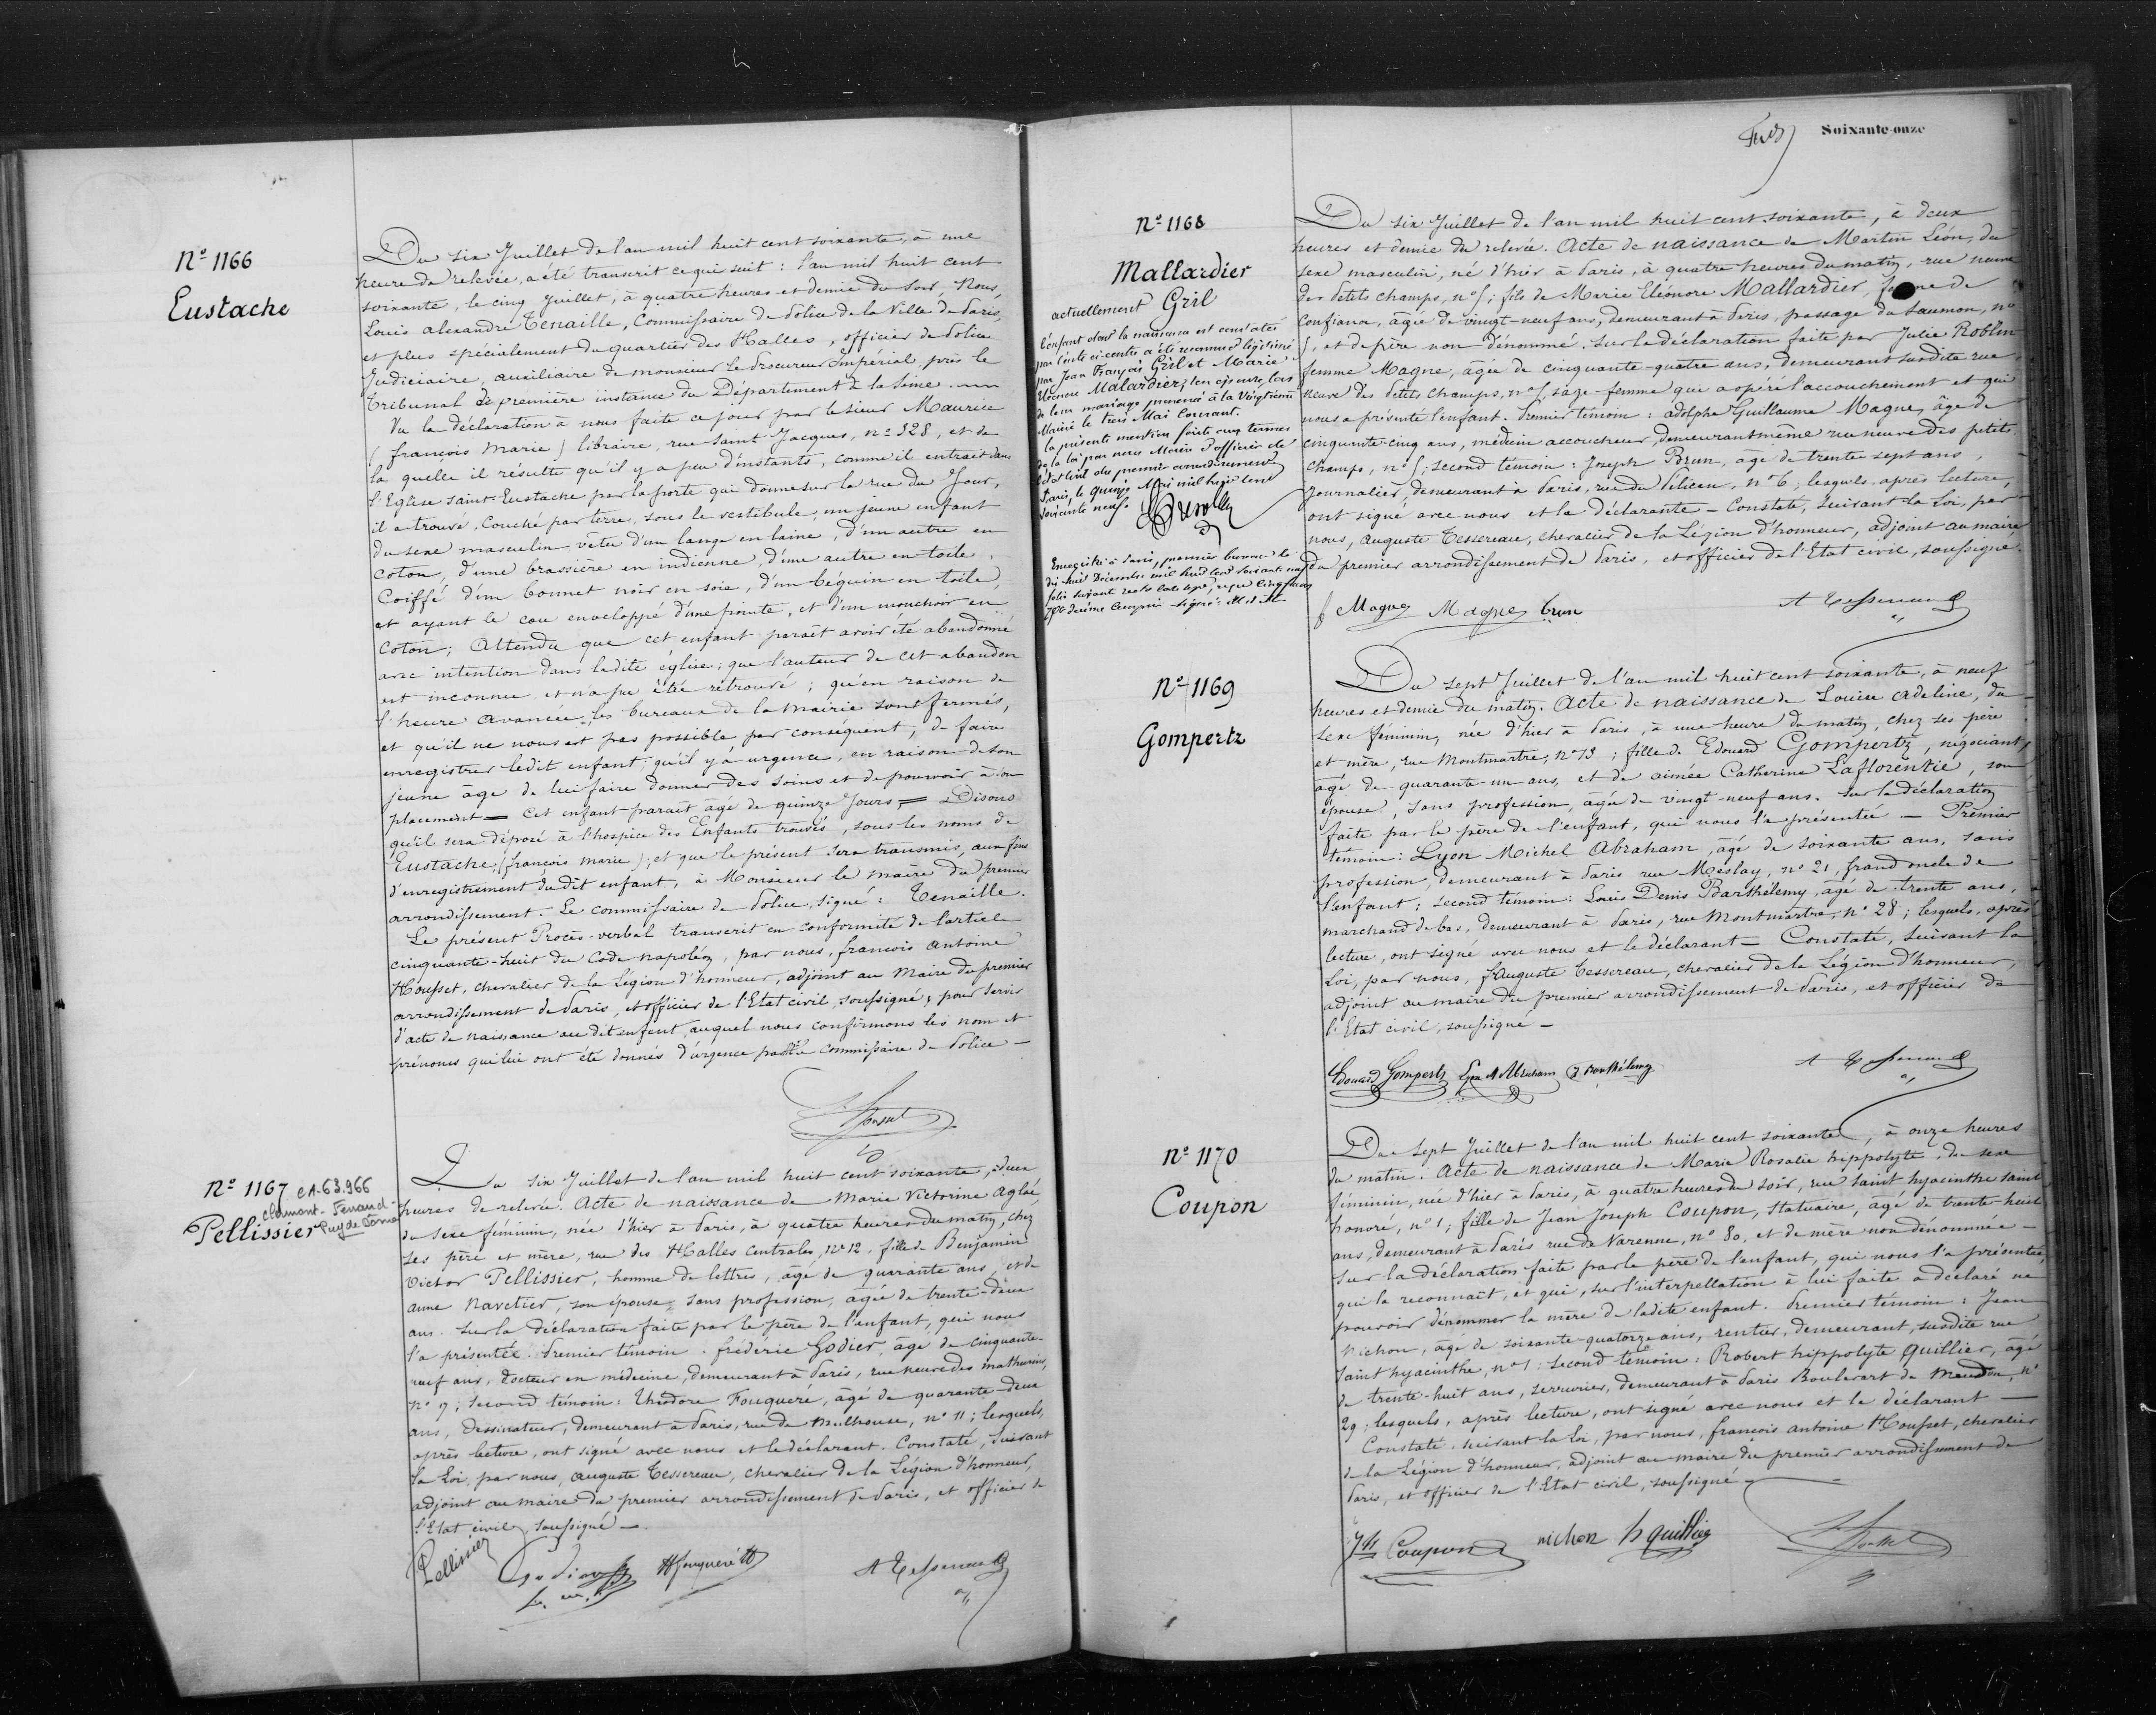 Nº 1166
Eustache
Du six Juillet de l'an mil huit cent soixante, à une
heure de relevée, a été transcrit ce qui suit : l'an mil huit cent
soixante, le cinq Juillet, à quatre heures et demie du soir, Nous,
Louis alexandre Tenaille, Commissaire de Police de la Ville de Paris,
et plus spécialement du quartier des Halles, officier de Police
Judiciaire, auxiliaire de monsieur le Procureur Impérial près le
Tribunal de première instance du Département de la Seine.
Vu la déclaration à nous faite ce jour par le sieur Maurice
(françois Marie) libraire, rue Saint-Jacques, nº 328, et de
la quelle il résulte qu'il y a peu d'instants, comme il entrait dans
l'Eglise Saint-Eustache par la porte qui donne sur la rue du Jour,
il a trouvé, Couché par terre, sous le vestibule, un jeune enfant
du sexe masculin, vêtu d'un lange en laine, d'un autre en
coton, d'une brassière en indienne, d'une autre en toile,
Coiffé d'un bonnet noir en soie, d'un béguin en toile,
et ayant le cou enveloppé d'une pointe, et d'un mouchoir en
coton; Attendu que cet enfant paraît avoir été abandonné
avec intention dans ladite église; que l'auteur de cet abandon
est inconnu et n'a pu être retrouvé; qu'en raison de
l'heure avancée, les bureaux de la mairie sont fermés,
et qu'il ne nous est pas possible par conséquent, de faire
enregistrer ledit enfant; qu'il y a urgence, en raison de son
jeune âge de lui faire donner des soins et de pourvoir à son
placement — Cet enfant paraît âgé de quinze Jours — Disons
qu'il sera déposé à l'hospice des Enfants trouvés, sous les noms de
Eustache, (françois marie); et que le présent sera transmis, aux fins
d'enregistrement du dit enfant, à Monsieur le maire du premier
arrondissement. Le commissaire de Police, signé : Tenaille.
Le présent Procès-verbal transcrit en conformité de l'article
cinquante-huit du Code napoléon, par nous, françois antoine
Housset, chevalier de la Légion d'honneur, adjoint au Maire du premier
arrondissement de Paris, et officier de l'Etat civil, soussigné, pour servir
d'acte de naissance au dit enfant, auquel nous confirmons les nom et
prénoms qui lui ont été donnés d'urgence par le commissaire de Police —
Nº 1167 CA. 63.966
Clermont-Ferrand
Pellissier Puy de Dôme
Du six Juillet de l'an mil huit cent soixante, à deux
heures de relevée. Acte de naissance de Marie Victorine Aglaé,
du sexe féminin, née d'hier à Paris, à quatre heures du matin, chez
ses père et mère, rue des Halles centrales, nº 12, fille de Benjamin
Victor Pellissier, homme de lettres, âgé de quarante ans, et de
anne Navetier, son épouse, sans profession, âgée de trente-deux
ans. Sur la déclaration faite par le père de l'enfant, qui nous
l'a présentée. Premier témoin : frédéric Godier, âgé de cinquante-
neuf ans, docteur en médecine, demeurant à Paris, rue neuve des mathurins,
nº 9; second témoin : Théodore Fouqueré, âgé de quarante-deux
ans, dessinateur, demeurant à Paris, rue de Mulhouse, nº 11; lesquels,
après lecture, ont signé avec nous et le déclarant. Constaté, suivant
la Loi, par nous, auguste Tessereau, chevalier de la Légion d'honneur,
adjoint au maire du premier arrondissement de Paris, et officier de
l'Etat civil, soussigné —
Pellissier
Soixante-onze
Nº 1168
Mallardier
actuellement Gril
l'enfant dont la naissance est constatée
par l'acte ci-contre a été reconnu et légitimé
par Jean François Gril et Marie
Eléonore Malardier, son épouse, lors
de leur mariage prononcé à la Vingtième
Mairie le trois Mai Courant.
la présente mention faite aux termes
de la loi par nous Maire d'officier de
l'état civil du premier arrondissement
Paris, le quinze Mai mil huit cent
soixante neuf
Enregistré à Paris, premier bureau le
dix-huit Décembre mil huit cent soixante neuf
Du six Juillet de l'an mil huit cent soixante, à deux
heures et demie de relevée. Acte de naissance de Martin Léon, du
sexe masculin, né d'hier à Paris, à quatre heures du matin, rue neuve
des Petits champs, nº 5; fils de Marie Eléonore Mallardier, femme de
confiance, âgée de vingt-neuf ans, demeurant à Paris, passage du Saumon, nº
5, et de père non dénommé. Sur la déclaration faite par Julie Roblin
femme Magne, âgée de cinquante-quatre ans, demeurant susdite rue
neuve des Petits champs, nº 5, sage-femme qui a opéré l'accouchement et qui
nous a présenté l'enfant. Premier témoin : adolphe Guillaume Magne, âgé de
cinquante-cinq ans, médecin accoucheur, demeurant même rue neuve des petits
champs, nº 5; second témoin : Joseph Brun, âgé de trente sept ans,
Journalier, demeurant à Paris, rue du Pélican, nº 6; lesquels, après lecture,
ont signé avec nous et la déclarante — Constaté, suivant la Loi, par
nous, Auguste Tessereau, chevalier de la Légion d'honneur, adjoint au maire
du premier arrondissement de Paris, et officier de l'Etat civil, soussigné.
f Magne Magne brun A Tessereau
Nº 1169
Gompertz
Du sept Juillet de l'an mil huit cent soixante, à neuf
heures et demie du matin. Acte de naissance de Louise Adeline, du
sexe féminin, née d'hier à Paris, à une heure du matin, chez ses père
et mère, rue Montmartre, nº 13; fille de Edouard Gompertz, négociant,
âgé de quarante-un ans, et de aimée Catherine Laflorentie, son
épouse, sans profession, âgée de vingt-neuf ans. Sur la déclaration
faite par le père de l'enfant, qui nous l'a présentée — Premier
témoin : Lyon Michel Abraham, âgé de soixante ans, sans
profession, demeurant à Paris rue Meslay, nº 21, grand oncle de
l'enfant; second témoin : Louis Denis Barthélemy, âgé de trente ans,
marchand de bas, demeurant à Paris, rue Montmartre, nº 28; lesquels, après
lecture, ont signé avec nous et le déclarant — Constaté, suivant la
Loi, par nous, Auguste Tessereau, chevalier de la Légion d'honneur,
adjoint au maire du premier arrondissement de Paris, et officier de
l'Etat civil, soussigné —
Edouard Gompertz Lyon M Abraham Barthélemy A Tessereau
Nº 1170
Coupon
Du sept Juillet de l'an mil huit cent soixante, à onze heures
du matin. Acte de naissance de Marie Rosalie hippolyte, du sexe
féminin, née d'hier à Paris, à quatre heures du soir, rue saint hyacinthe saint
honoré, nº 1; fille de Jean Joseph Coupon, Statuaire, âgé de trente-huit
ans, demeurant à Paris rue de Varenne, nº 80, et de mère non dénommée —
Sur la déclaration faite par le père de l'enfant, qui nous l'a présentée,
qui la reconnaît, et qui, sur l'interpellation à lui faite a déclaré ne
pouvoir dénommer la mère de ladite enfant. Premier témoin : Jean
Nichon, âgé de soixante-quatorze ans, rentier, demeurant, susdite rue
saint hyacinthe, nº 1; second témoin : Robert hippolyte Quillier, âgé
de trente-huit ans, serrurier, demeurant à Paris Boulevart de Meudon, nº
29; lesquels, après lecture, ont signé avec nous et le déclarant —
Constaté, suivant la loi, par nous, françois antoine Housset, chevalier
de la Légion d'honneur, adjoint au maire du premier arrondissement de
Paris, et officier de l'Etat civil, soussigné —
Coupon nichon h quillier